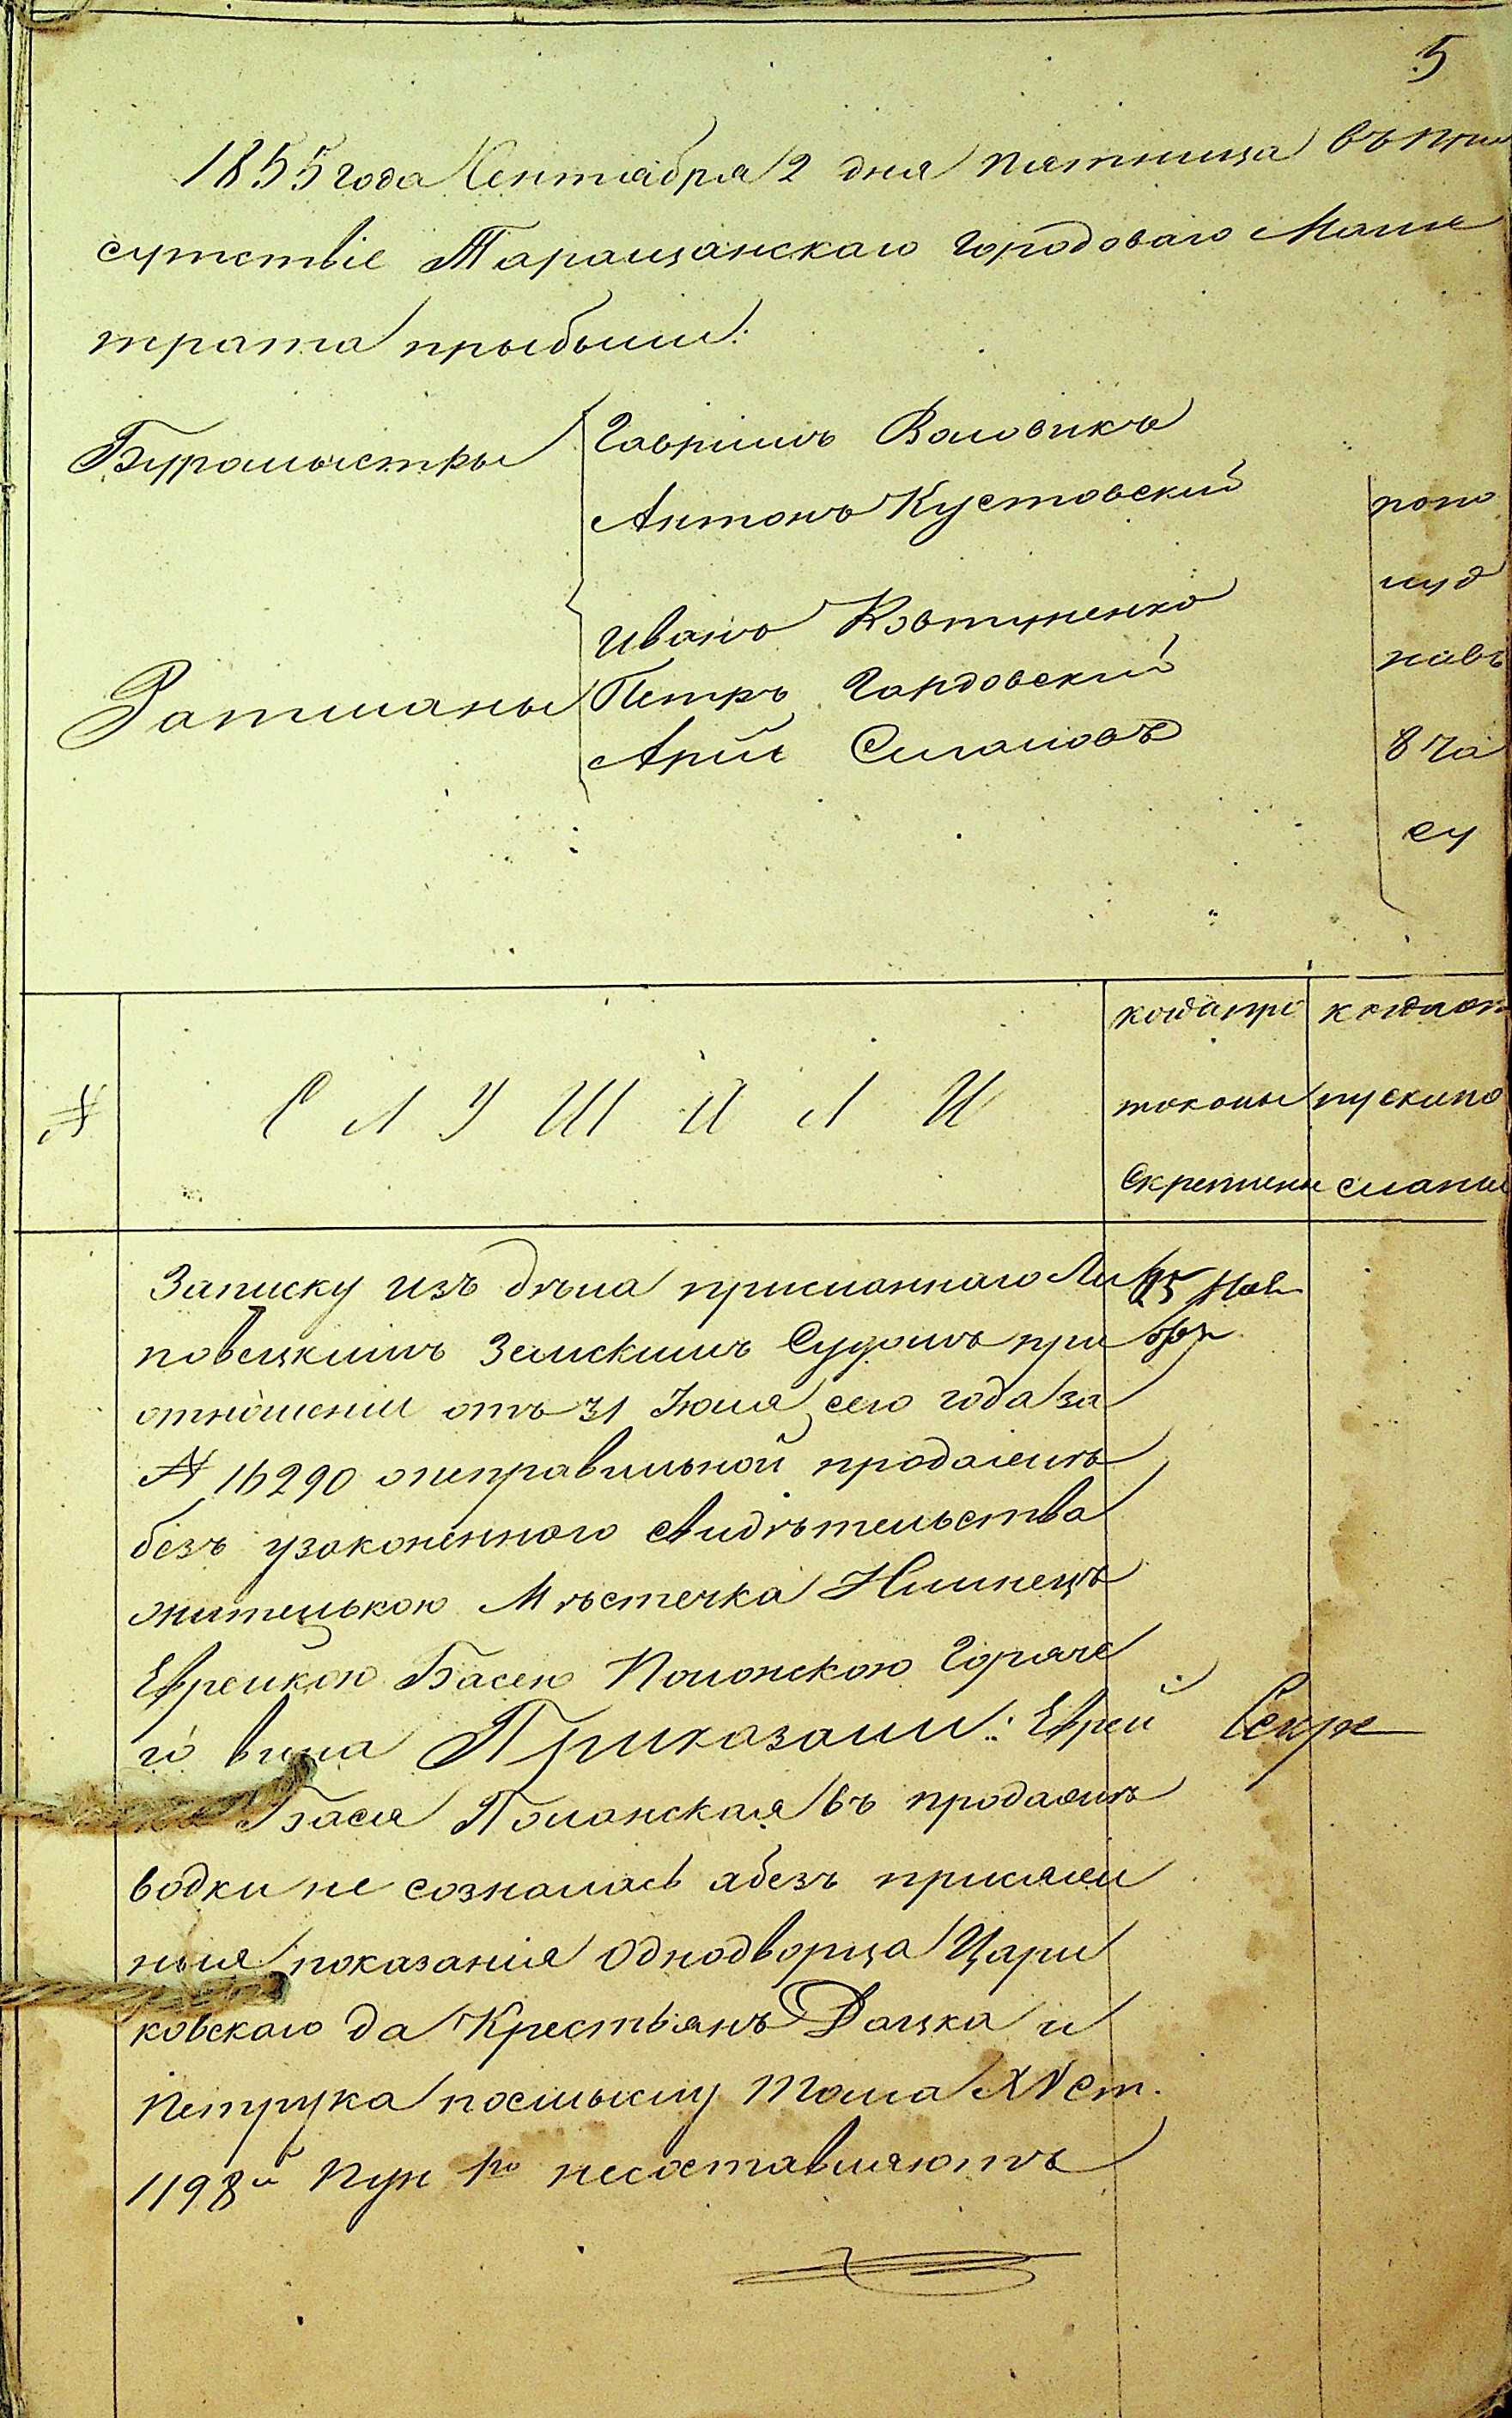 5
1855 года Сентября 2 дня пятница въ при
сутствіе Таращанскаго Городоваго Магис
трата прыбыли:
Бургомыстры
Гавріилъ Воловикъ
Антонъ Кустовский
Ратманы
Иванъ Ковтуненко
Петръ Гардовский
Арій Силаловъ
попо
луд
навъ
8 ча
су
№
СЛУШАЛИ
когда про
токолы
скреплены
когда от
пуски по
сланы
Записку изъ дѣла присланного Ли
повецкимъ Земскимъ Судомъ при
отношеніи отъ 31 Июля сего года за
№ 16290 онеправильной продажѣ
безъ узаконенного свидѣтельства
жителькою Мѣстечка Илинецъ
Еврейкою Басею Полонскою Горяче
го вина Приказали: Еврей
ка Бася Полонская въ продажѣ
водки не созналась а безъ присяж
ныя показания Однодворца Цари
ковскаго да Крестьянъ Дацка и
Петрука посилыслу Тома XV ст.
1198й пун 1го несоставляютъ
25 Ноя
бря
Секре